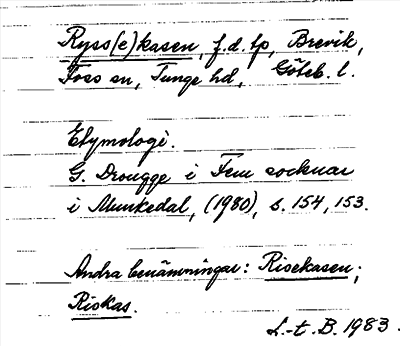 Ryss(e)kasen, f.d. tp, Brevik,
Foss sn, Tunge hd, Göteb. l.
Etymologi.
G. Drougge i Fem socknar
i Munkedal, (1980), s. 154, 153.
Andra benämningar: Risekasen;
Riskas.
L.-t. B. 1983.